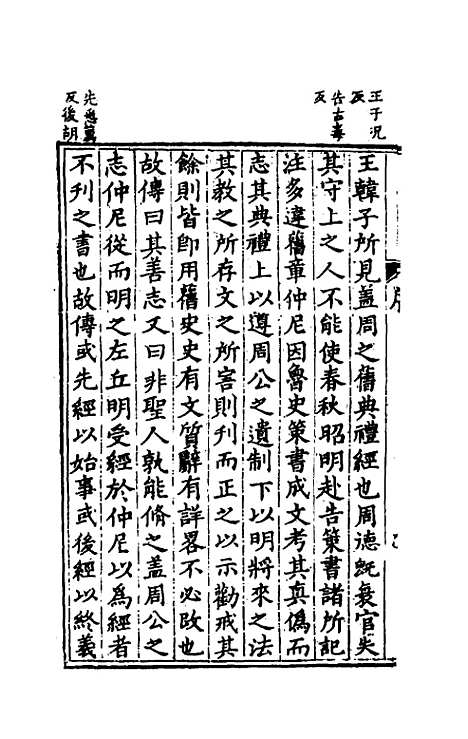 王于況
反
告古毒
反
王韓子所見蓋周之舊典禮經也周德旣衰官失
其守上之人不能使春秋昭明赴告策書諸所記
注多違舊章仲尼因魯史策書成文考其真偽而
志其典禮上以遵周公之遺制下以明將來之法
其教之所存文之所害則刊而正之以示勸戒其
餘則皆即用舊史史有文質辭有詳畧不必改也
故傳曰其善志又曰非聖人孰能脩之蓋周公之
志仲尼從而明之左丘明受經於仲尼以為經者
不刊之書也故傳或先經以始事或後經以終義
先悉薦
反後胡